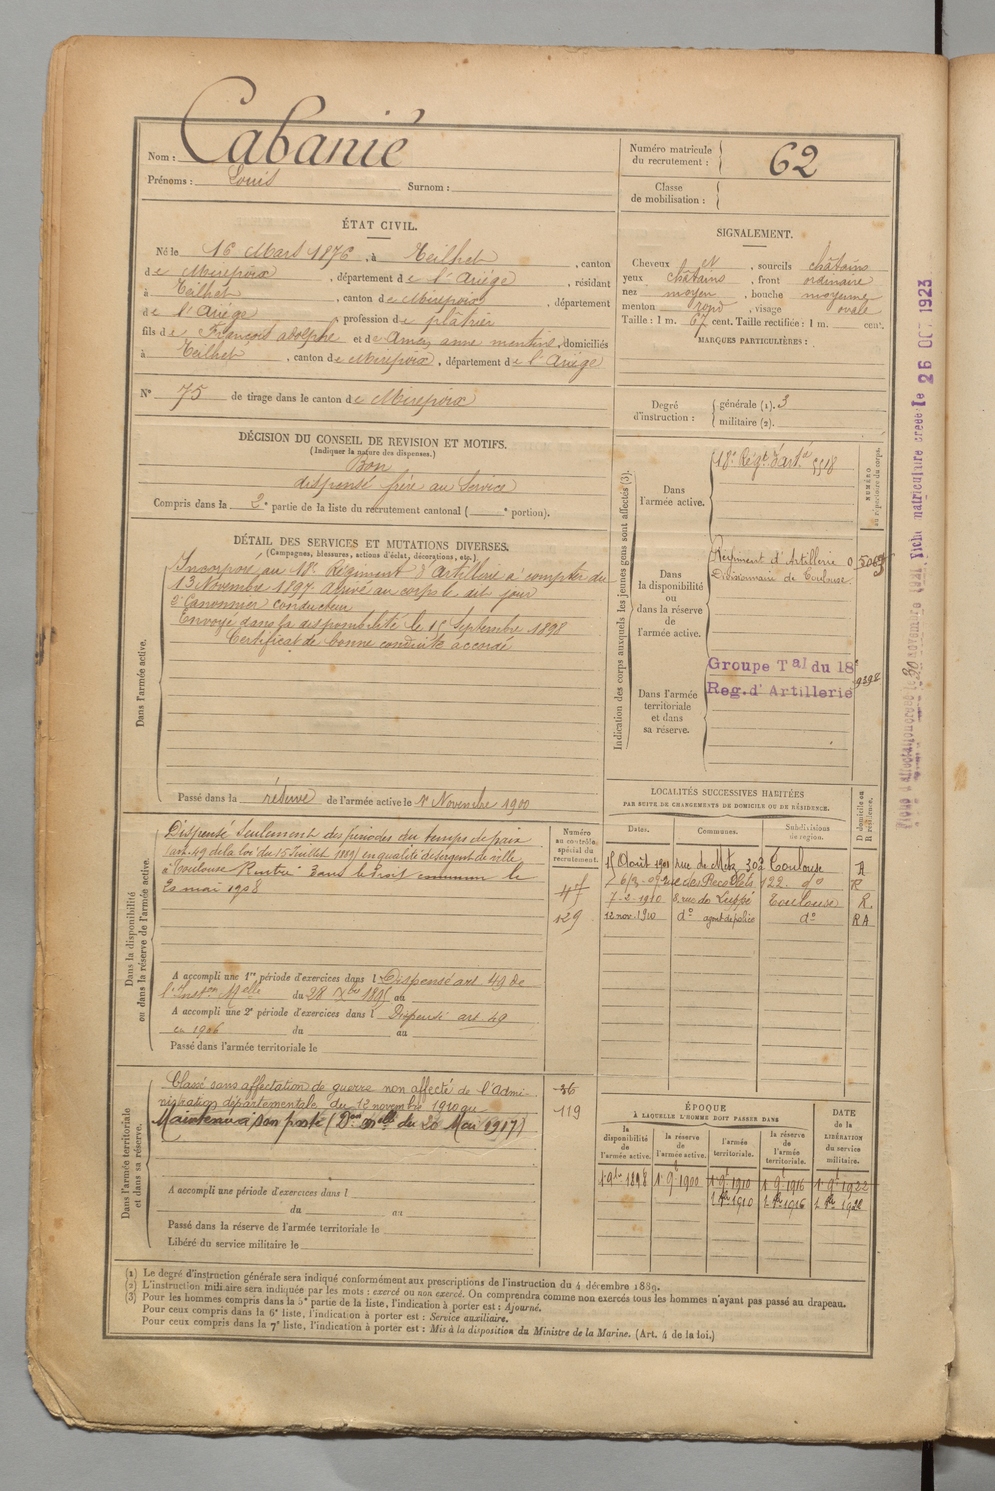 Nom : Cabanié
Prénoms : Louis Surnom :
Numéro matricule du recrutement : 62
Classe de mobilisation :
ÉTAT CIVIL.
Né le 16 Mars 1876, à Teilhet, canton
de Mirepoix, département de l'Ariège, résidant
à Teilhet, canton de Mirepoix, département
de l'Ariège, profession de plâtrier
fils de François adolphe et de Amey anne mentine, domiciliés
à Teilhet, canton de Mirepoix, département de l'Ariège
N° 75 de tirage dans le canton de Mirepoix
SIGNALEMENT.
Cheveux N, sourcils châtains
yeux châtains, front ordinaire
nez moyen, bouche moyenne
menton rond, visage ovale
Taille : 1 m. 67 cent. Taille rectifiée : 1 m. cent.
MARQUES PARTICULIÈRES :
Degré d'instruction : générale (1). 3
militaire (2).
DÉCISION DU CONSEIL DE REVISION ET MOTIFS.
(Indiquer la nature des dispenses.)
Bon
dispensé frère au Service
Compris dans la 2e partie de la liste du recrutement cantonal ( e portion).
DÉTAIL DES SERVICES ET MUTATIONS DIVERSES.
(Campagnes, blessures, actions d'éclat, décorations, etc.)
Dans l'armée active.
Incorporé au 18e Régiment d'Artillerie à compter du
13 Novembre 1897 Arrivé au corps le dit jour
2e Canonnier conducteur
Envoyé dans la disponibilité le 15 Septembre 1898
Certificat de bonne conduite accordé
Passé dans la réserve de l'armée active le 1er Novembre 1900
Indication des corps auxquels les jeunes gens sont affectés (3).
NUMÉRO au répertoire du corps.
Dans l'armée active.
18e Régt d'Art.ie 5518
Dans la disponibilité ou dans la réserve de l'armée active.
Régiment d'Artillerie
Divisionnaire de Toulouse
Dans l'armée territoriale et dans sa réserve.
Groupe Tal du 18e
Reg. d'Artillerie 9292
Fiche matriculaire créée le 26 OCT 1923
LOCALITÉS SUCCESSIVES HABITÉES
PAR SUITE DE CHANGEMENTS DE DOMICILE OU DE RÉSIDENCE.
Dates. Communes. Subdivisions de région. D domicile ou R résidence.
Août 1901 rue de Metz 30 Toulouse
rue des Recollets 122 do R
7-2-1910 8 rue de Luppé Toulouse R
12 nov. 1910 do agent de police do RA
Dans la disponibilité ou dans la réserve de l'armée active.
Numéro au contrôle spécial du recrutement.
Dispensé seulement des périodes du temps de paix
(art. 49 de la loi du 15 Juillet 1889) en qualité de sergent de ville
à Toulouse. Rentré dans le droit commun le
20 mai 1908
129
A accompli une 1re période d'exercices dans l Dispensé art 49 de
l'Inston Melle du 28 Xbre 1895 au
A accompli une 2e période d'exercices dans l Dispensé art 49
en 1906 du au
Passé dans l'armée territoriale le
Dans l'armée territoriale et dans sa réserve.
Classé sans affectation de guerre non affecté de l'Admi-
nistration départementale du 12 novembre 1910
Maintenu à son poste (Don Mlle du 20 Mai 1917)
36
119
A accompli une période d'exercices dans l
du au
Passé dans la réserve de l'armée territoriale le
Libéré du service militaire le
ÉPOQUE
À LAQUELLE L'HOMME DOIT PASSER DANS
la disponibilité de l'armée active. la réserve de l'armée active. l'armée territoriale. la réserve de l'armée territoriale. DATE de la LIBÉRATION du service militaire.
1 9bre 1898 1 9e 1900 1 9e 1910 1 9e 1916 1 9e 1922
1 8bre 1910 1 8bre 1916 1 8bre 1922
(1) Le degré d'instruction générale sera indiqué conformément aux prescriptions de l'instruction du 4 décembre 1889.
(2) L'instruction militaire sera indiquée par les mots : exercé ou non exercé. On comprendra comme non exercés tous les hommes n'ayant pas passé au drapeau.
(3) Pour les hommes compris dans la 5e partie de la liste, l'indication à porter est : Ajourné.
Pour ceux compris dans la 6e liste, l'indication à porter est : Service auxiliaire.
Pour ceux compris dans la 7e liste, l'indication à porter est : Mis à la disposition du Ministre de la Marine. (Art. 4 de la loi.)